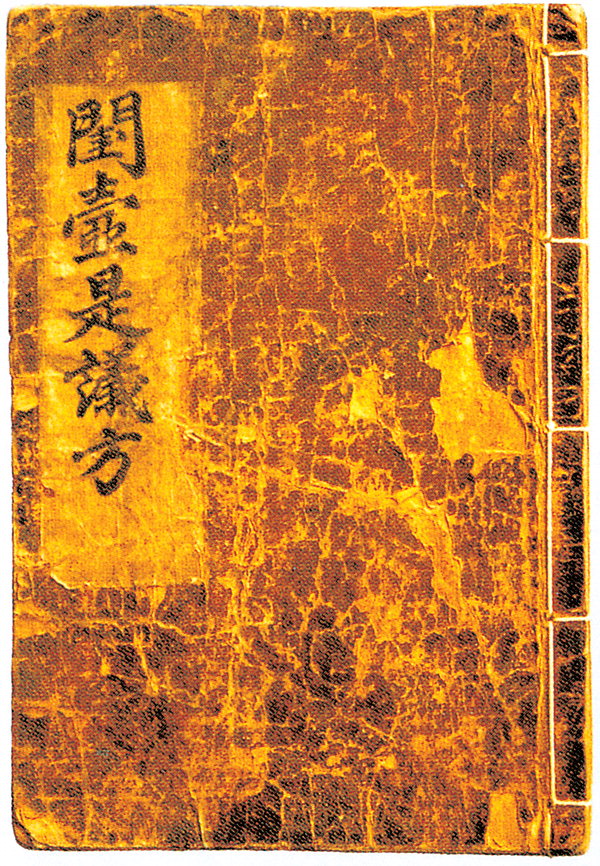 閨壼是議方